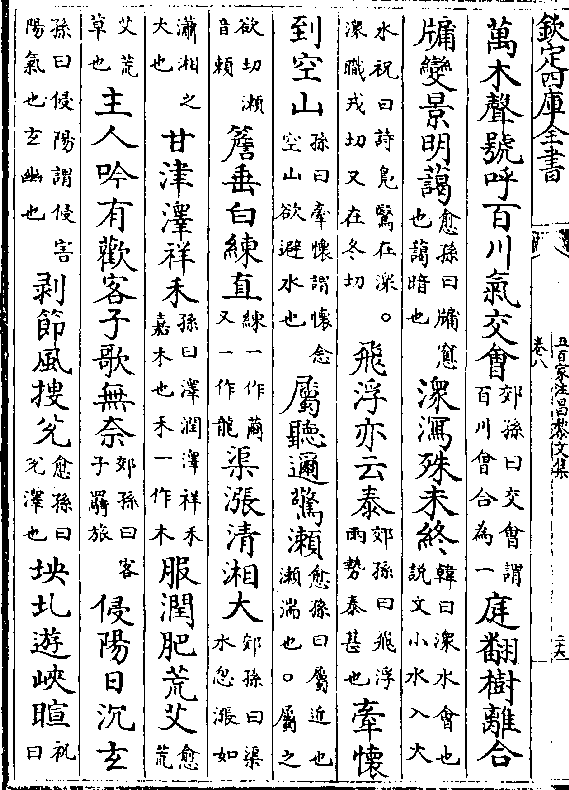 欽定四庫全書
萬木聲號呼百川氣交會郊孫曰交會謂百川會合為一庭翻樹離合
牖變景明藹愈孫曰牖窻也藹暗也潈瀉殊未終韓曰潈水會也說文小水入大
水祝曰詩鳧鷖在潈。潈職戎切又在冬切飛浮亦云泰郊孫曰飛浮雨勢泰甚也牽懷
到空山孫曰牽懷謂懷念空山欲避水也屬聽邇驚瀬愈孫曰屬近也瀬湍也。屬之
欲切瀬音頼簷垂白練直練一作繭又一作龍渠漲清湘大郊孫曰渠水忽漲如
瀟湘之大也甘津澤祥禾孫曰澤潤澤祥禾嘉木也禾一作木服潤肥荒艾愈荒
艾荒草也主人吟有歡客子歌無奈郊孫曰客子羈旅侵陽日沉玄
孫曰侵陽謂侵害陽氣也玄幽也剥節風搜兊愈孫曰兊澤也坱圠遊峽暄祝曰
五百家注昌黎文集
卷八
二六